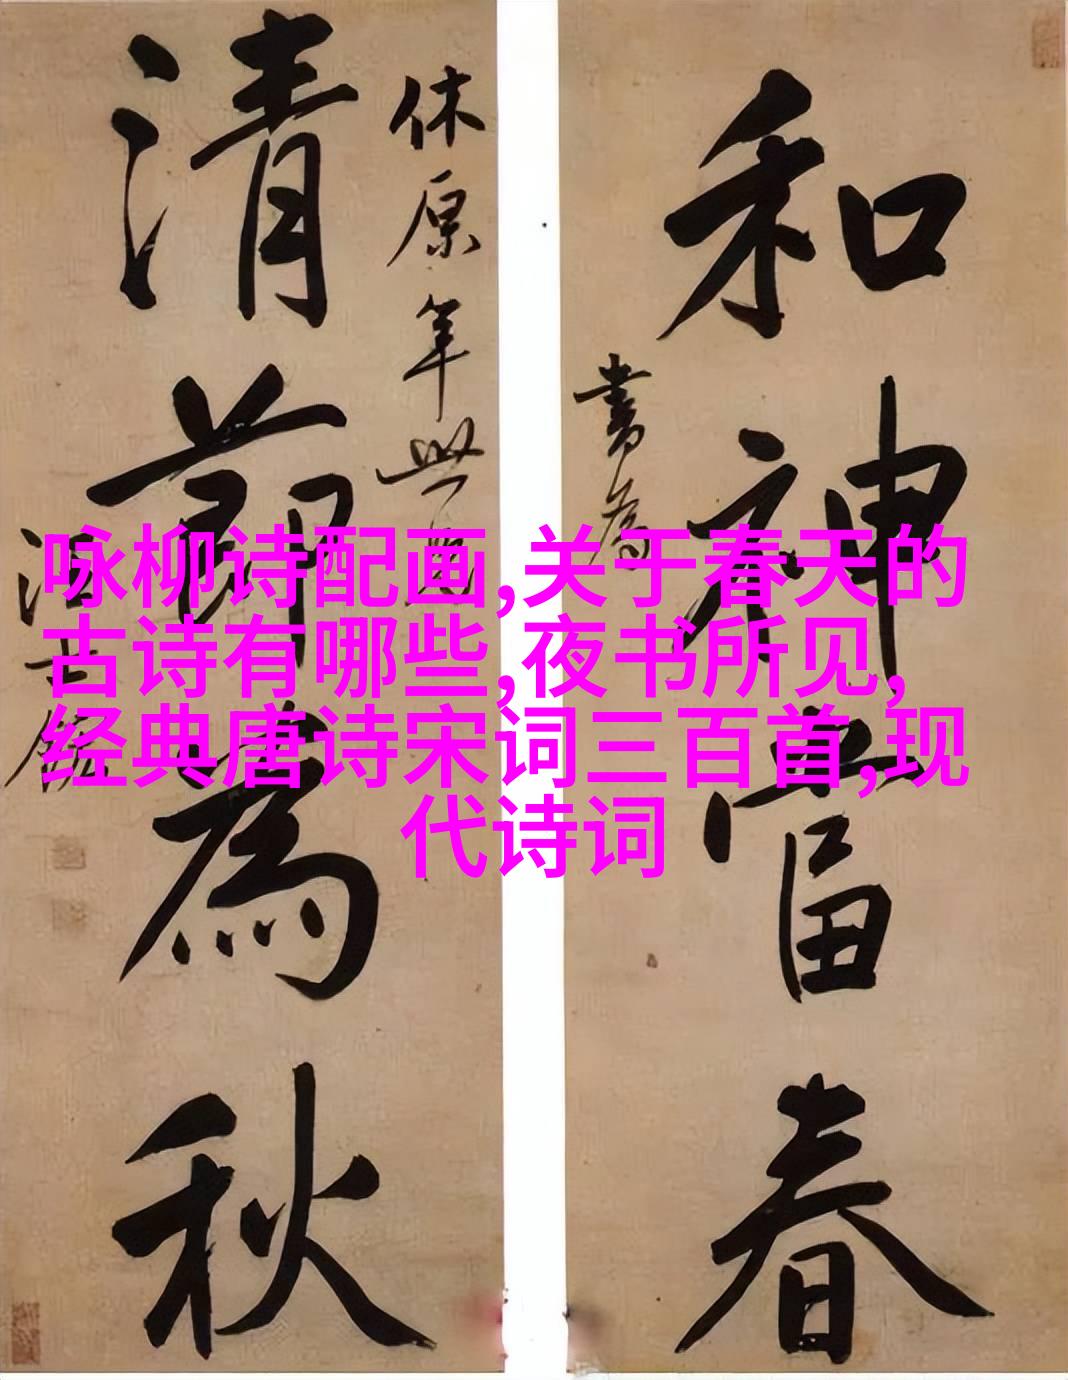 和神當春
書為
休原年世兄
清節為秋
汪士鋐
咏柳诗配画,关于春天的
古诗有哪些,夜书所见,
经典唐诗宋词三百首,现
代诗词